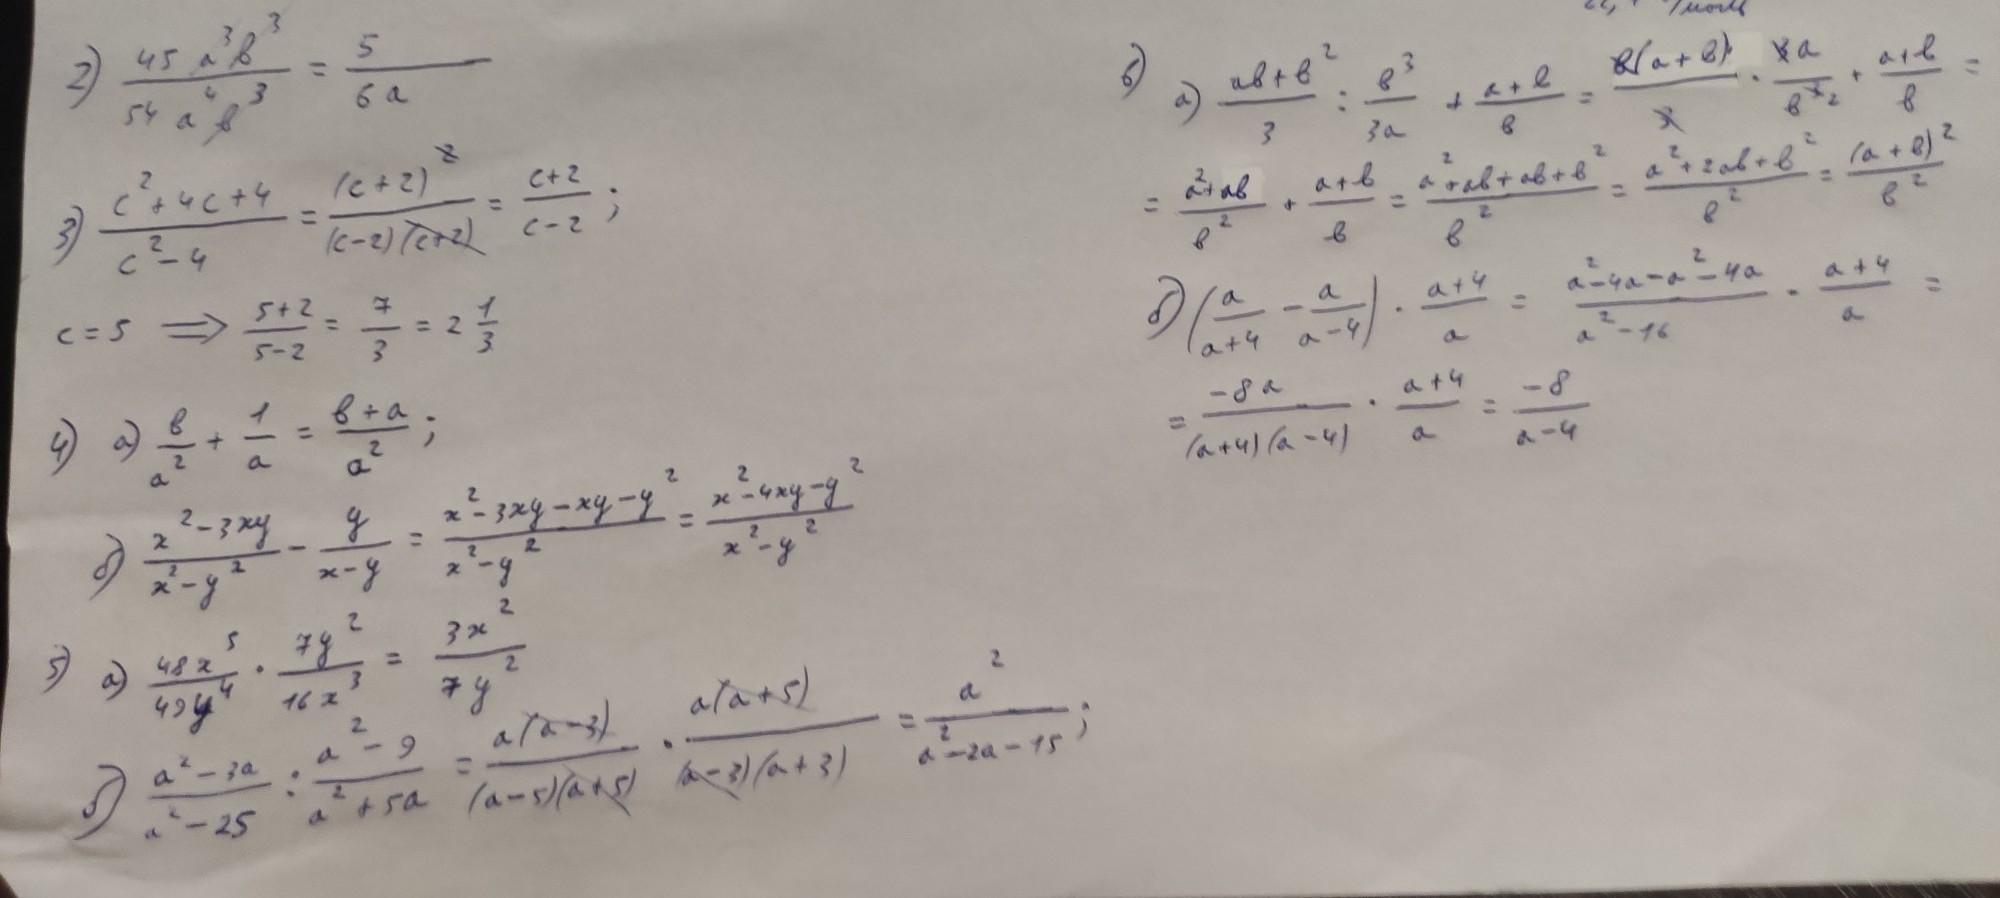 2) 45a³b³/54a⁴b³ = 5/6a
3) (c²+4c+4)/(c²-4) = (c+2)²/((c-2)(c+2)) = (c+2)/(c-2);
c=5 ⟹ (5+2)/(5-2) = 7/3 = 2 1/3
4) а) в/a² + 1/a = (в+a)/a²;
б) (x²-3xy)/(x²-y²) - y/(x-y) = (x²-3xy-xy-y²)/(x²-y²) = (x²-4xy-y²)/(x²-y²)
5) а) 48x⁵/49y⁴ · 7y²/16x³ = 3x²/7y²
б) (a²-3a)/(a²-25) : (a²-9)/(a²+5a) = a(a-3)/((a-5)(a+5)) · a(a+5)/((a-3)(a+3)) = a²/(a²-2a-15);
6) а) (aв+в²)/3 : в³/3a + (a+в)/в = в(a+в)/3 · 3a/в³² + (a+в)/в =
= (a²+aв)/в² + (a+в)/в = (a²+aв+aв+в²)/в² = (a²+2aв+в²)/в² = (a+в)²/в²
б) (a/(a+4) - a/(a-4)) · (a+4)/a = (a²-4a-a²-4a)/(a²-16) · (a+4)/a =
= -8a/((a+4)(a-4)) · (a+4)/a = -8/(a-4)